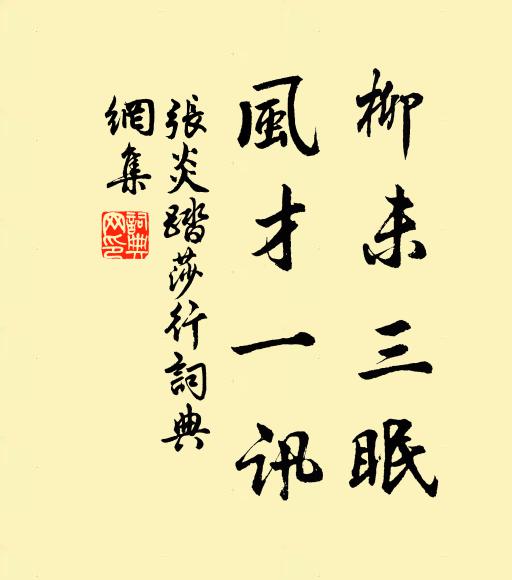 柳未三眠
風才一訊
張炎踏莎行詞典
網集
詞典網印